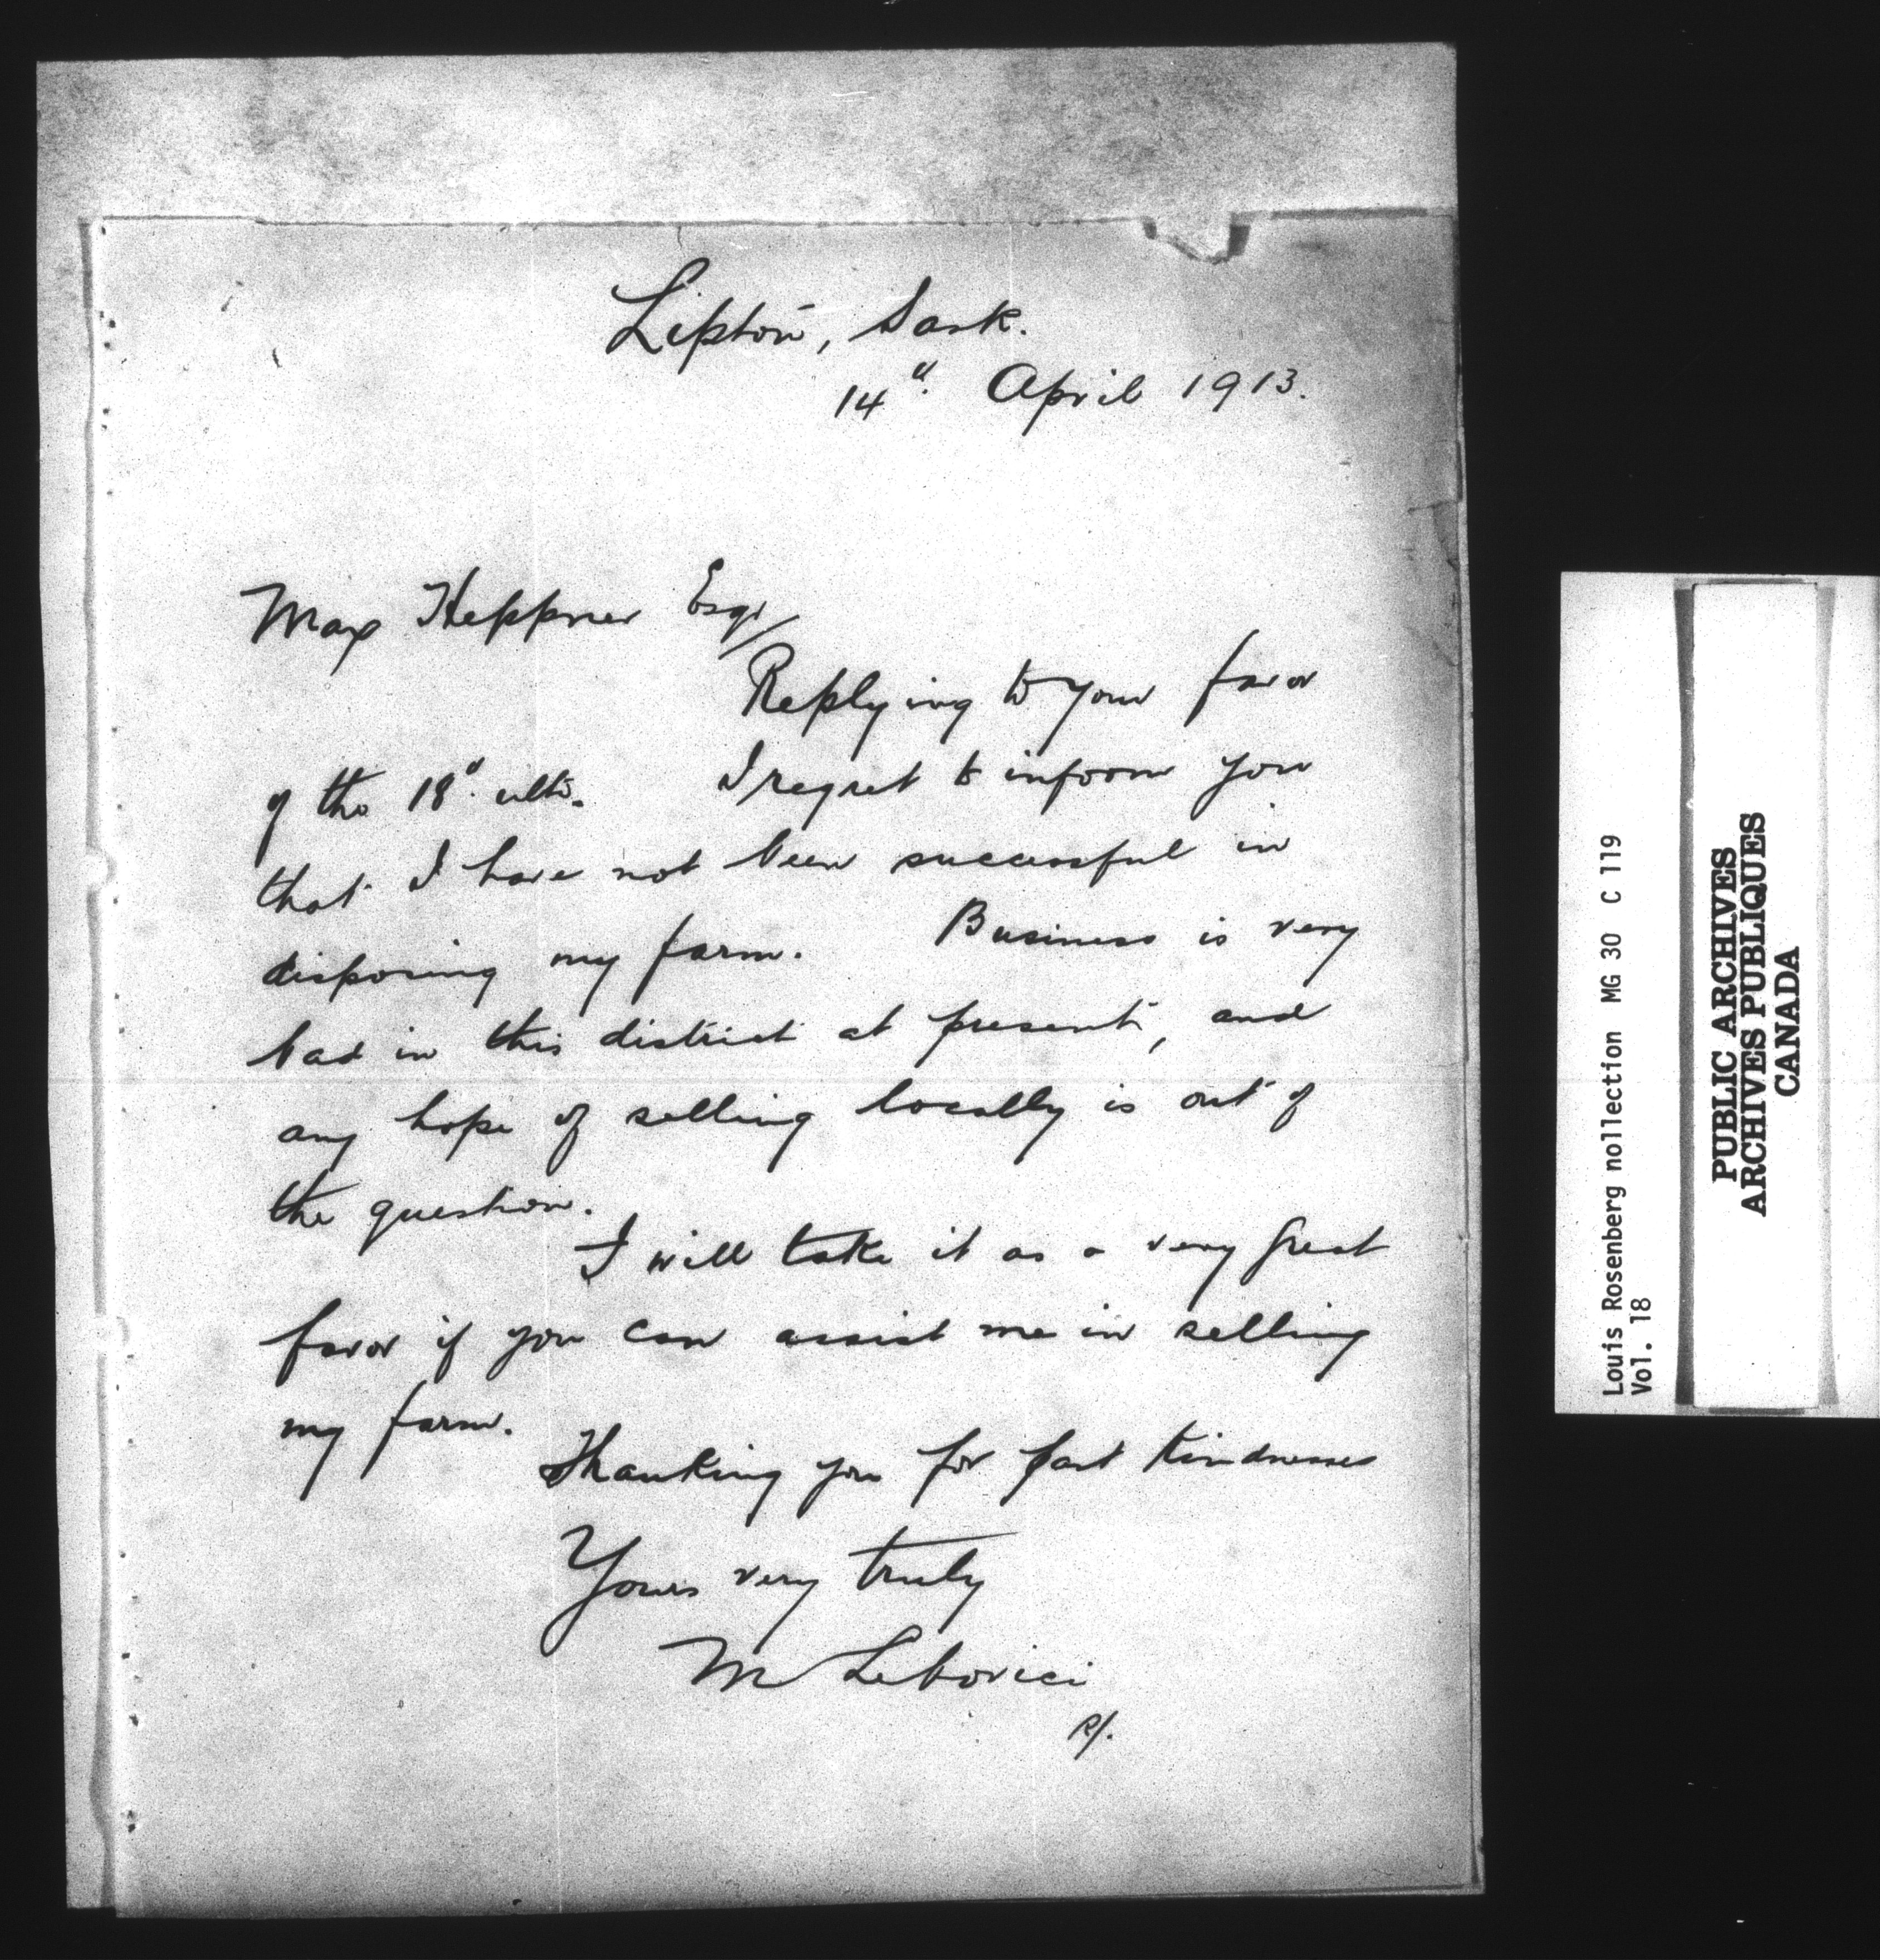 Lipton, Sask.
14". April 1913.
Max Heppner Esqr/
Replying to your favor
of the 18". ulto. I regret to inform you
that I have not been successful in
disposing my farm. Business is very
bad in this district at present, and
any hope of selling locally is out of
the question.
I will take it as a very great
favor if you can assist me in selling
my farm.
Thanking you for past kindnesses
Yours very truly
M Lebovici
R/.
Louis Rosenberg nollection MG 30 C 119
Vol. 18
PUBLIC ARCHIVES
ARCHIVES PUBLIQUES
CANADA